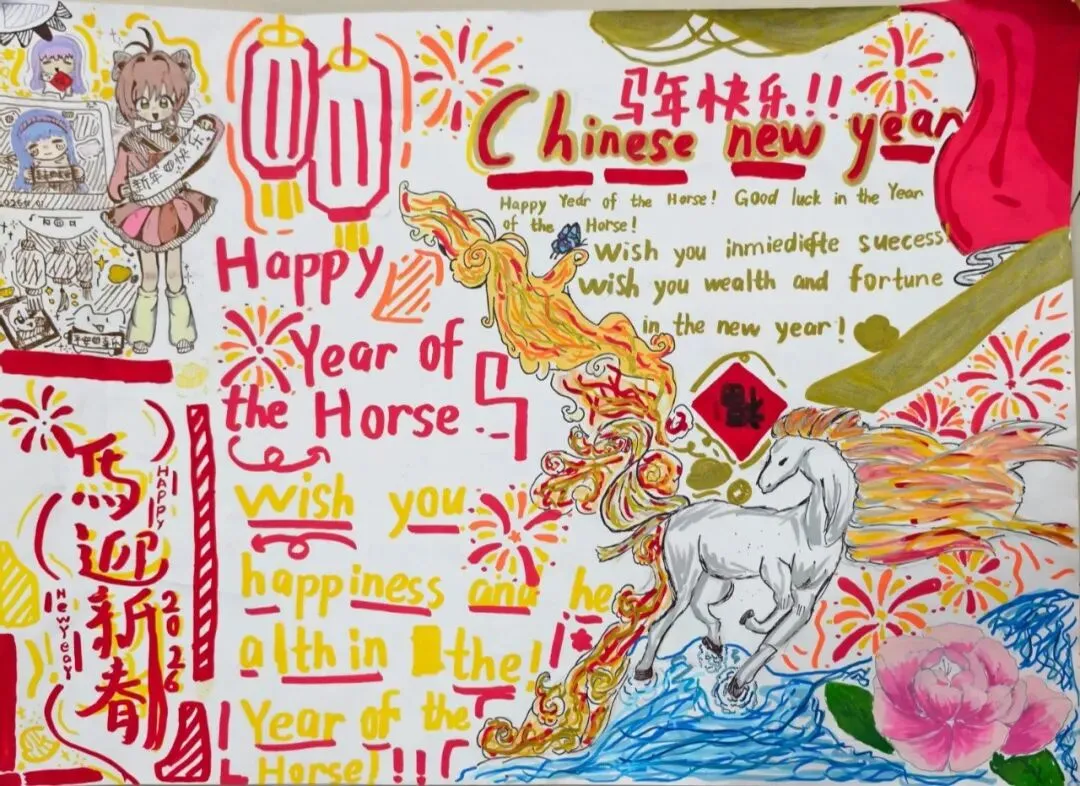 马年快乐!!
Chinese new year
Happy Year of the Horse! Good luck in the Year
of the Horse!
Wish you inmiediate suecess
Wish you wealth and fortune
in the new year!
新年快乐
Happy
Year of
the Horse
wish you
happiness and he
alth in the!
Year of the
Horse!!!
福
馬迎新春
HAPPY
New Year
2026